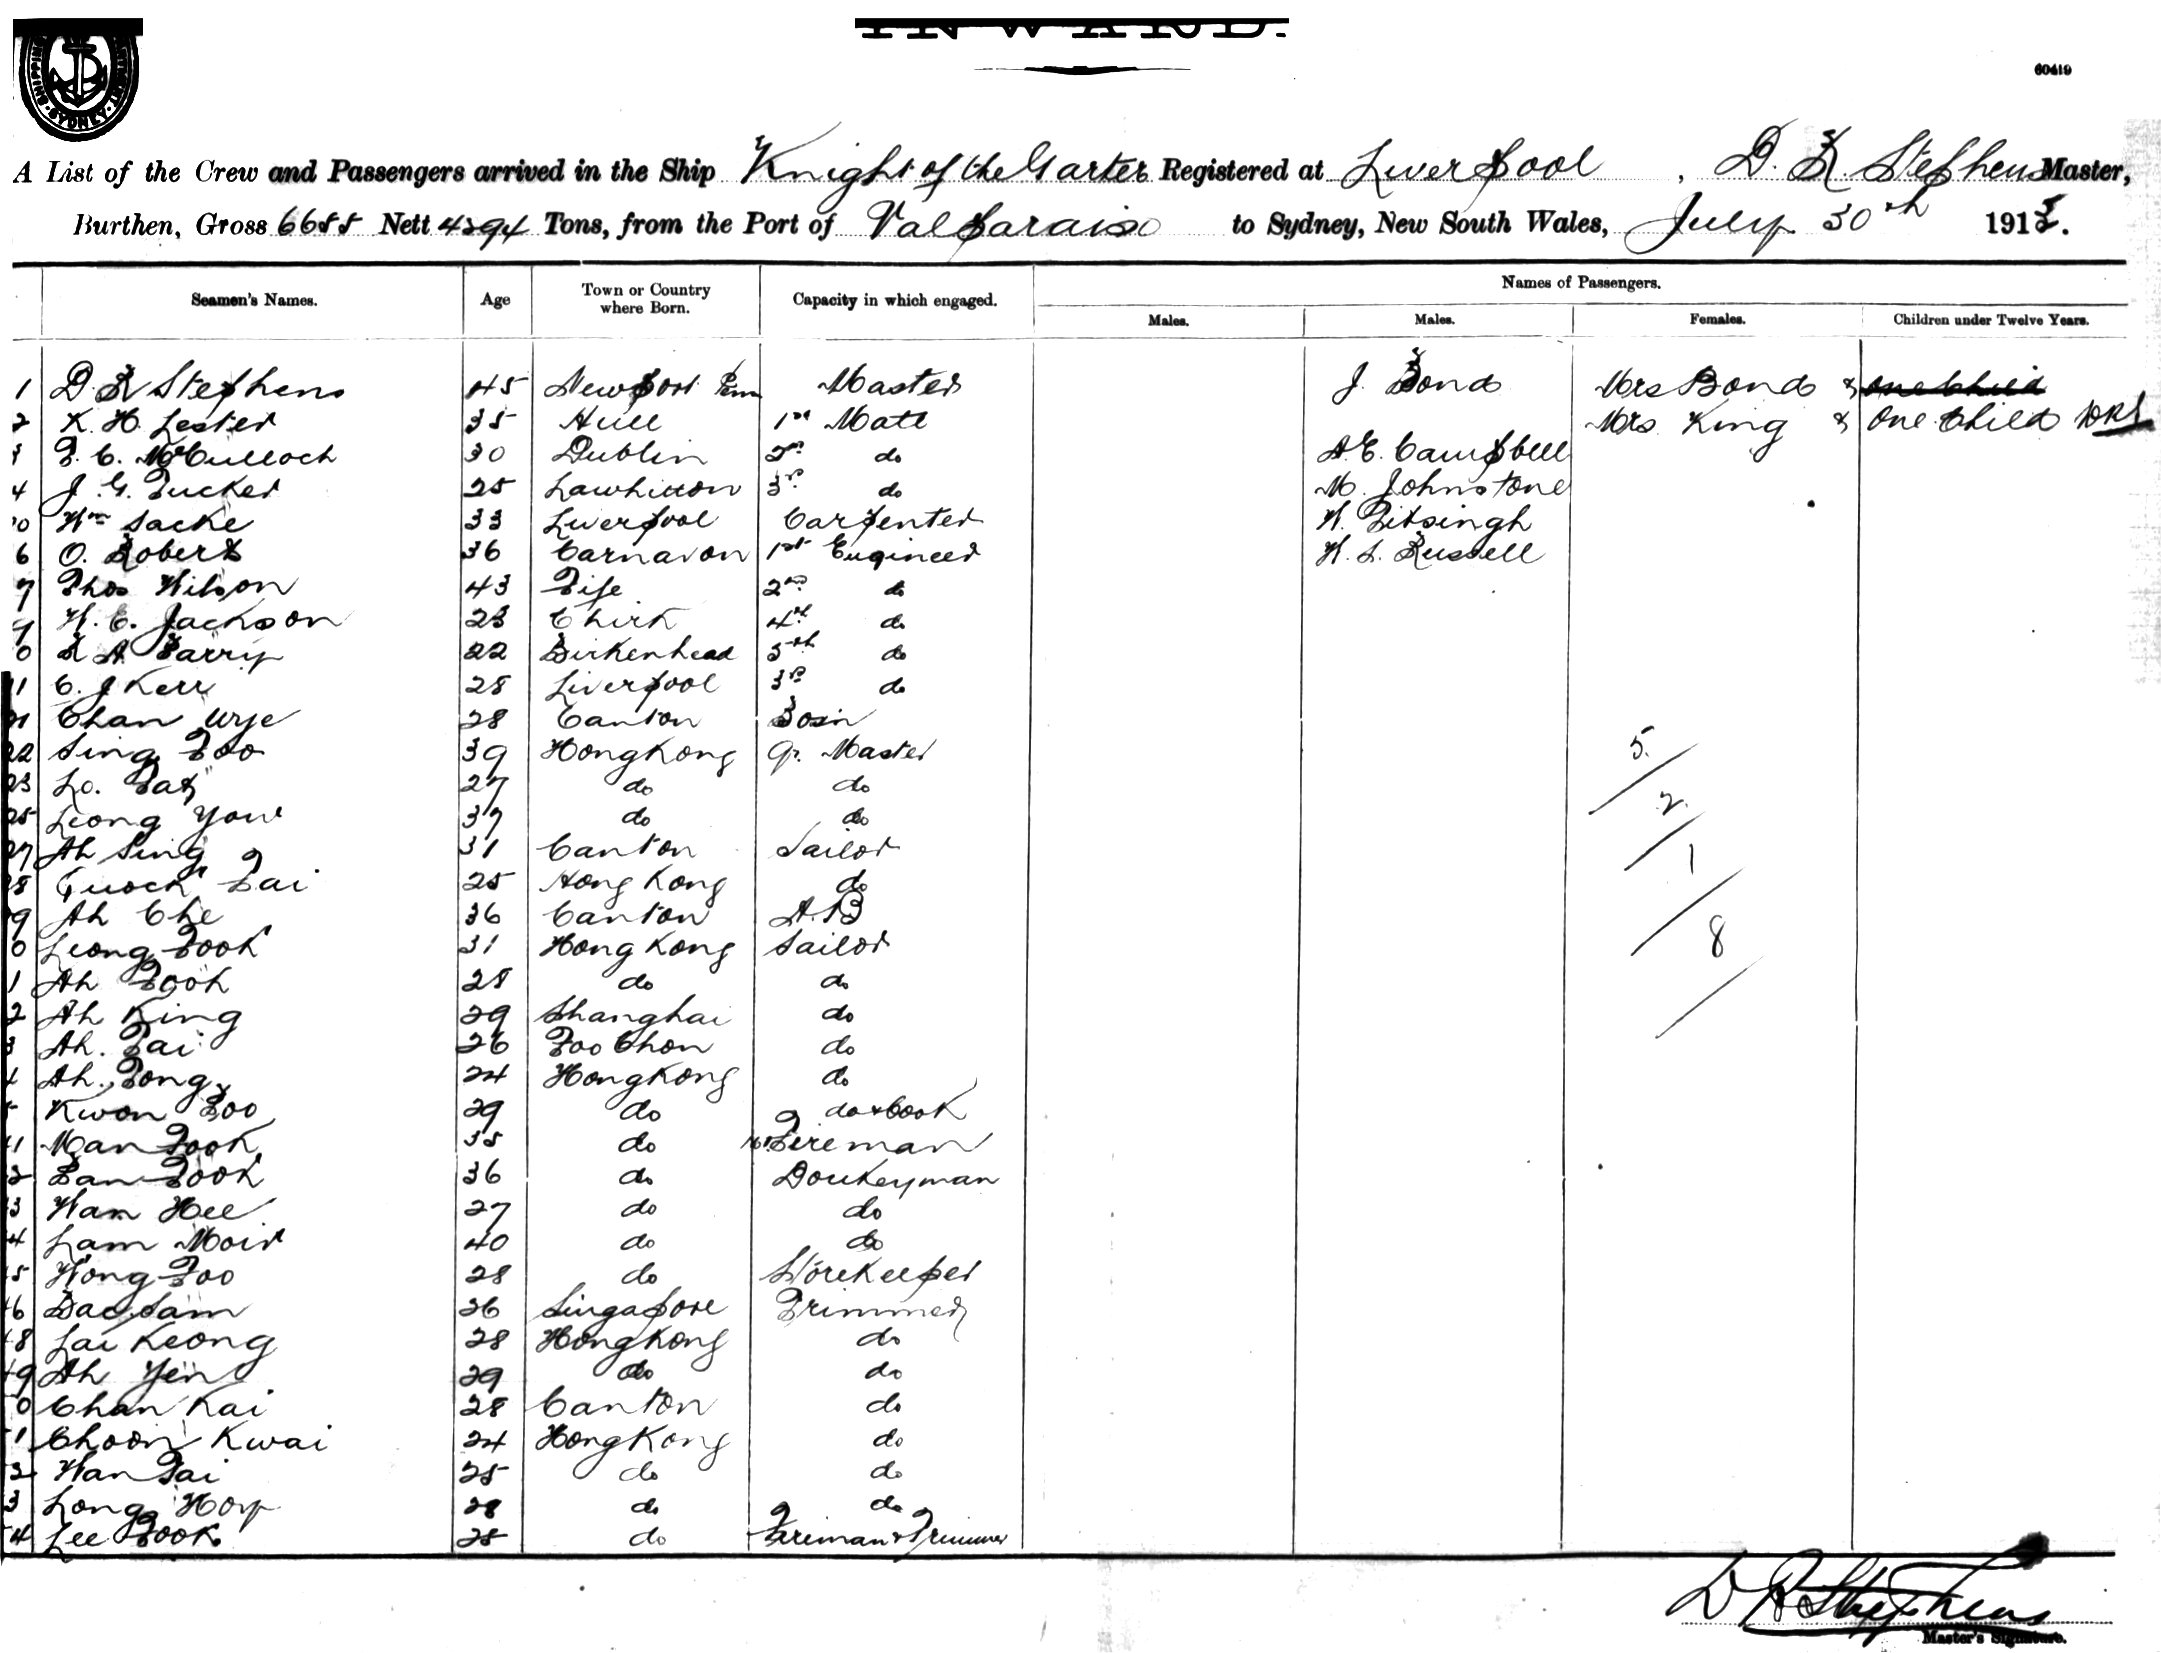 INWARD.
SHIPPING SYDNEY
60419
A List of the Crew and Passengers arrived in the Ship Knight of the Garter Registered at Liverpool, D. R. Stephens Master,
Burthen, Gross 6655 Nett 4294 Tons, from the Port of Valparaiso to Sydney, New South Wales, July 30th 1913.
Names of Passengers.
Seamen's Names. Age Town or Country where Born. Capacity in which engaged. Males. Males. Females. Children under Twelve Years.
1 D. R Stephens 45 Newport Master J. Bond Mrs Bond & One Child
2 K. H. Lester 35 Hull 1st Mate Mrs King & One Child DRS
T. C. McCulloch 30 Dublin 2nd do A. E. Campbell
4 J. G. Tucker 25 Lawhitton 3rd do M. Johnstone
Wm Sacke 33 Liverpool Carpenter W. Titsingh
6 O. Roberts 36 Carnavon 1st Engineer W. S. Russell
7 Thos Wilson 43 Fife 2nd do
9 W. E. Jackson 23 Chirk 4th do
0 R A Parry 22 Birkenhead 5th do
11 C. J Kerr 28 Liverpool 3rd do
21 Chan Wye 28 Canton Bosn
22 Sing Foo 39 HongKong Qr. Master
23 Lo. Fat 27 do do
25 Leong Yow 37 do do
27 Ah Sing 31 Canton Sailor
28 Quock Fai 25 Hong Kong do
9 Ah Che 36 Canton A.B
0 Leong Fook 31 Hong Kong Sailor
1 Ah Fook 28 do do
2 Ah King 29 Shanghai do
3 Ah. Tai 26 Foo Chon do
4 Ah. Tong 24 HongKong do
Kwon Foo 29 do do & Cook
41 Man Fook 35 do No1 Fireman
2 Fan Fook 36 do Donkeyman
3 Wan Hee 27 do do
4 Lam Moir 40 do do
5 Wong Foo 28 do Storekeeper
46 Dao Sam 26 Singapore Trimmer
48 Lai Keong 28 HongKong do
49 Ah Yen 29 do do
0 Chan Kai 28 Canton do
1 Choon Kwai 24 HongKong do
2 Wan Tai 25 do do
3 Long Hoy 28 do do
4 Lee Fook 25 do Fireman & Trimmer
5.
2.
1
8
D R Stephens
Master's Signature.